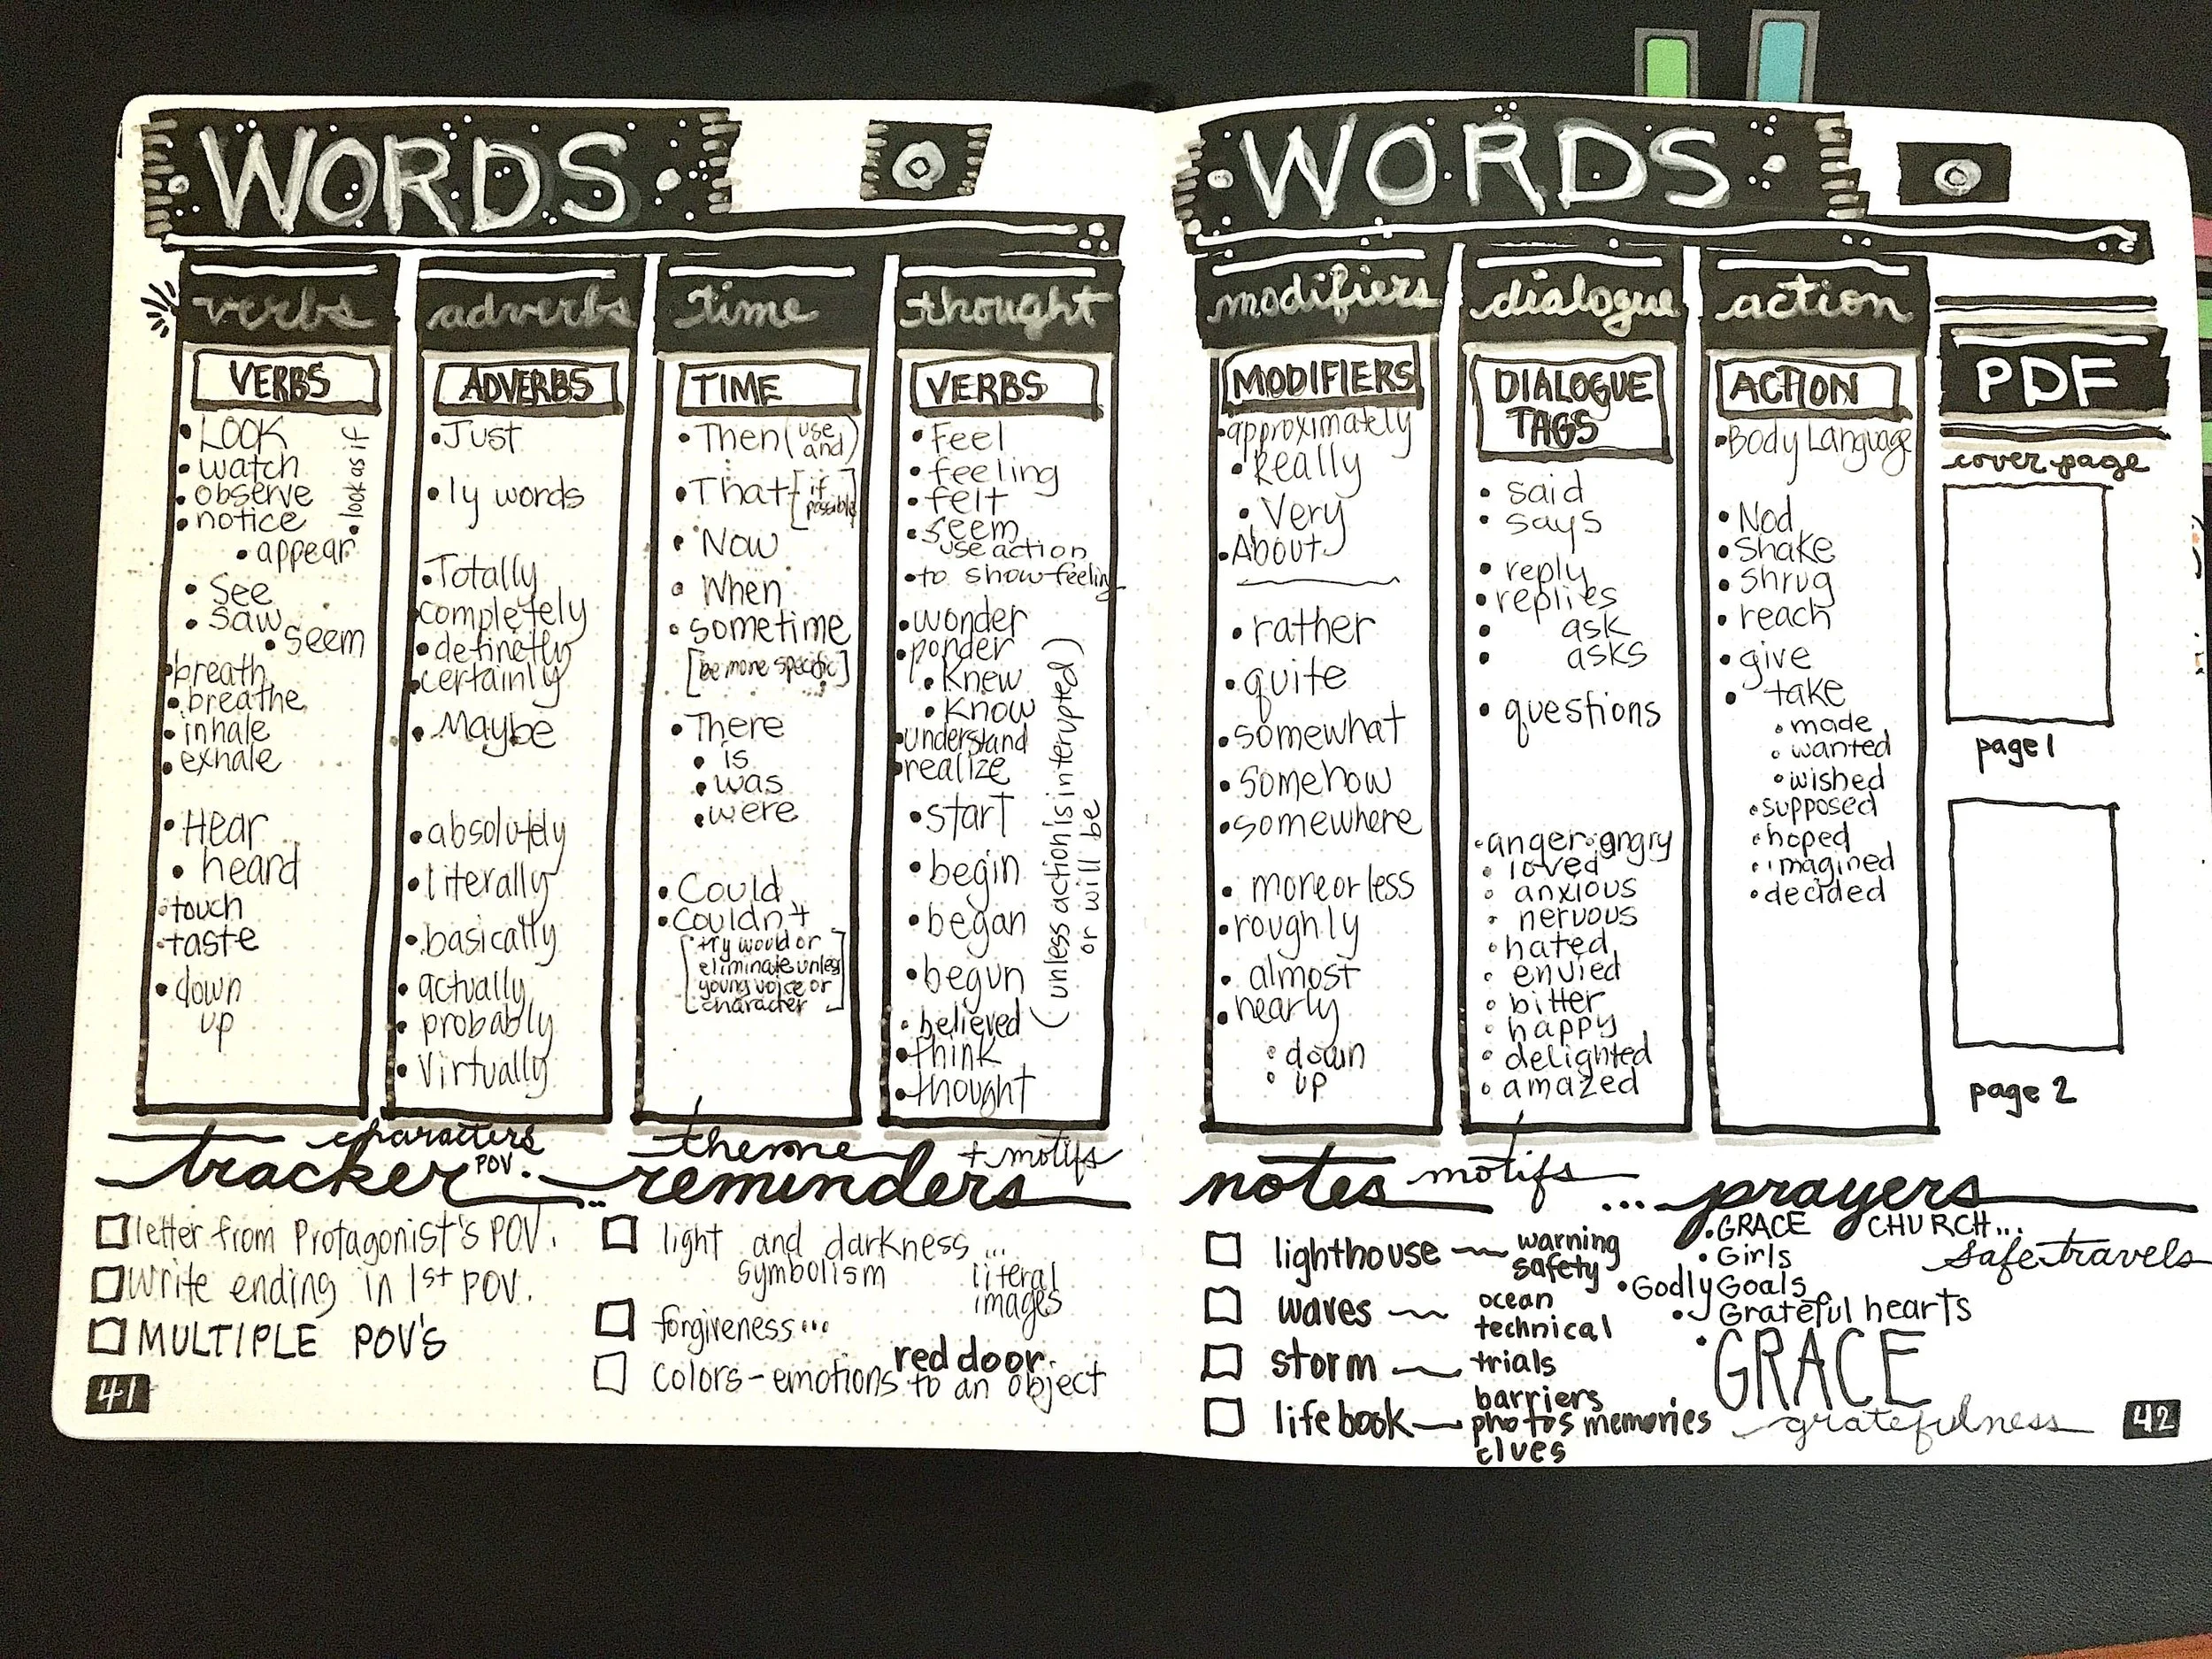 WORDS
verbs
VERBS
• Look
• watch
• observe
• notice
• look as if
• appear
• See
• Saw
• Seem
• breath
• breathe
• inhale
• exhale
• Hear
• heard
• touch
• taste
• down
up
adverbs
ADVERBS
• Just
• ly words
• Totally
completely
• definetly
• certainly
• Maybe
• absolutely
• literally
• basically
• actually
• probably
• Virtually
time
TIME
• Then (use and)
• That [if possible]
• Now
• When
• sometime
[be more specific]
• There
• is
• was
• were
• Could
• Couldn't
[try would or
eliminate unless
young voice or
character]
thought
VERBS
• Feel
• feeling
• felt
• seem
use action
• to show feeling
• wonder
• ponder
• Knew
• Know
• understand
• realize
• start
• begin
• began
• begun
(unless action is interupted)
or will be
• believed
• think
• thought
characters
tracker POV.
☐ letter from Protagonist's POV.
☐ Write ending in 1st POV.
☐ MULTIPLE POV'S
41
theme + motifs
... reminders
☐ light and darkness ...
symbolism literal
images
☐ forgiveness...
red door.
☐ Colors - emotions to an object
WORDS
modifiers
MODIFIERS
• approximately
• Really
• Very
• About
• rather
• quite
• somewhat
• Somehow
• somewhere
• more or less
• roughly
• almost
• nearly
• down
• up
dialogue
DIALOGUE
TAGS
• said
• says
• reply
• replies
• ask
• asks
• questions
• anger • angry
• loved
• anxious
• nervous
• hated
• envied
• bitter
• happy
• delighted
• amazed
action
ACTION
• Body Language
• Nod
• Shake
• Shrug
• reach
• give
• take
• made
• wanted
• wished
• supposed
• hoped
• imagined
• decided
PDF
cover page
page 1
page 2
notes motifs
☐ lighthouse warning
safety
☐ waves ocean
technical
☐ storm trials
barriers
☐ life book photos memories
clues
... prayers
• GRACE CHURCH...
• Girls safe travels
• Godly Goals
• Grateful hearts
• GRACE
gratefulness
42